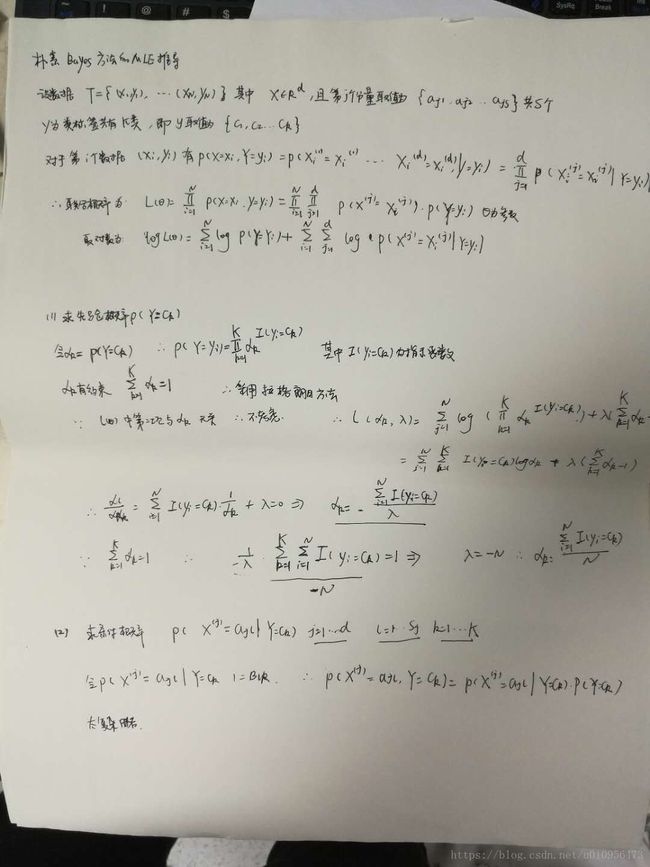 朴素 Bayes 方法的MLE推导
设数据 T={(x₁,y₁), ⋯ (x_N,y_N)} 其中 X∈R^d, 且第j个分量取值为 {a_j1, a_j2 .. a_js} 共S个
y为类标签共有K类, 即y取值为 {C₁, C₂... C_k}
对于第i个数据 (x_i, y_i) 有 p(X=x_i, Y=y_i) = p(X_i^(1)=x_i^(1) ⋯ X_i^(d)=x_i^(d), Y=y_i) = ∏_{j=1}^d p(X_i^(j)=x_i^(j)|Y=y_i)
∴ 联合概率为 L(θ) = ∏_{i=1}^N p(X=x_i, Y=y_i) = ∏_{i=1}^N ∏_{j=1}^d p(X^(j)=x_i^(j))·p(Y=y_i) θ为参数
取对数为 log L(θ) = ∑_{i=1}^N log p(Y=y_i) + ∑_{i=1}^N ∑_{j=1}^d log p(X^(j)=x_i^(j)|Y=y_i)
(1) 求先验概率 p(Y=C_k)
令α_k = p(Y=C_k) ∴ p(Y=y_i) = ∏_{k=1}^K α_k^{I(y_i=C_k)} 其中 I(y_i=C_k)为指示函数
α_k有约束 ∑_{k=1}^K α_k=1 ∴ 利用拉格朗日方法
∵ L(θ)中第二项与α_k 无关 ∴ 不考虑 ∴ L(α_k, λ) = ∑_{j=1}^N log (∏_{k=1}^K α_k^{I(y_i=C_k)}) + λ(∑_{k=1}^K α_k-
= ∑_{j=1}^N ∑_{k=1}^K I(y_i=C_k) log α_k + λ(∑_{k=1}^K α_k-1)
∴ dL/dα_k = ∑_{i=1}^N I(y_i=C_k)·1/α_k + λ=0 ⇒ α_k = - ∑_{i=1}^N I(y_i=C_k)/λ
∵ ∑_{k=1}^K α_k=1 ∴ 1/-λ · ∑_{k=1}^K ∑_{i=1}^N I(y_i=C_k) = 1 ⇒ λ=-N ∴ α_k = ∑_{i=1}^N I(y_i=C_k)/N
-N
(2) 求条件概率 p(X^(j)=a_jl|Y=C_k) j=1...d l=1...S_j k=1...K
令 p(X^(j)=a_jl|Y=C_k)=B_lk. ∴ p(X^(j)=a_jl, Y=C_k) = p(X^(j)=a_jl|Y=C_k)·p(Y=C_k)
太复杂 略.
https://blog.csdn.net/u010956473